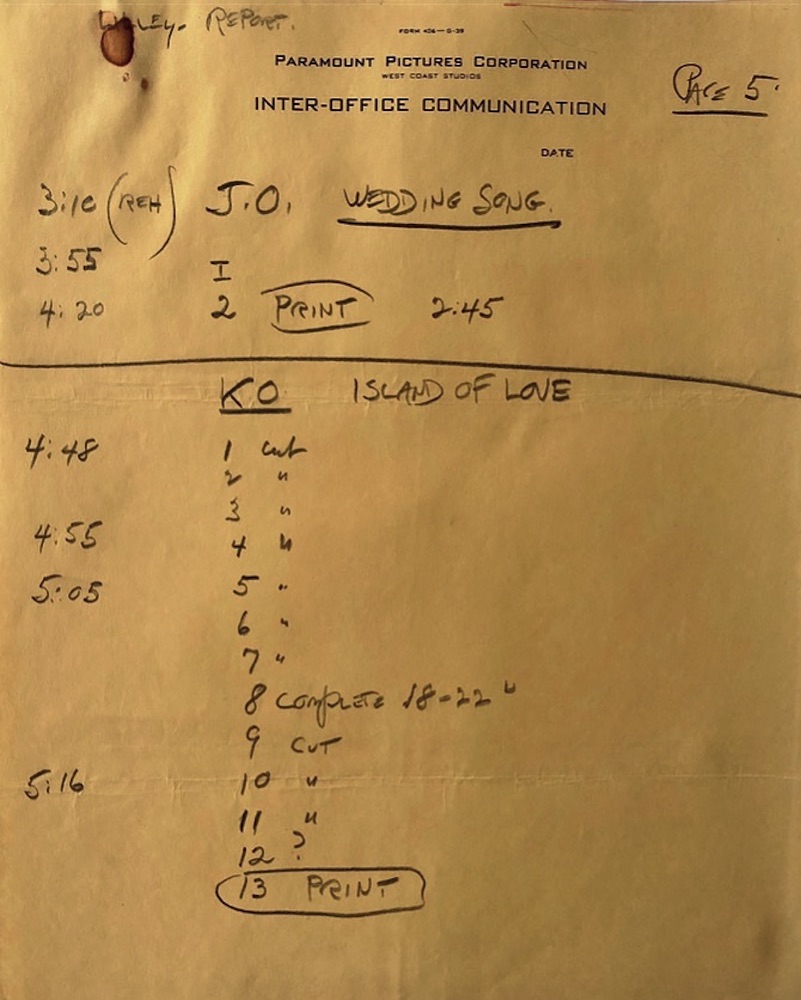 REPORT.
FORM 406—G-39
PARAMOUNT PICTURES CORPORATION
WEST COAST STUDIOS
INTER-OFFICE COMMUNICATION
PAGE 5
DATE
3:10 (REH) J.O. WEDDING SONG.
3:55 I
4:20 2 PRINT 2:45
KO ISLAND OF LOVE
4:48 1 cut
2 "
3 "
4:55 4 "
5:05 5 "
6 "
7 "
8 COMPLETE 18-22 "
9 CUT
5:16 10 "
11 "
12 ?
13 PRINT